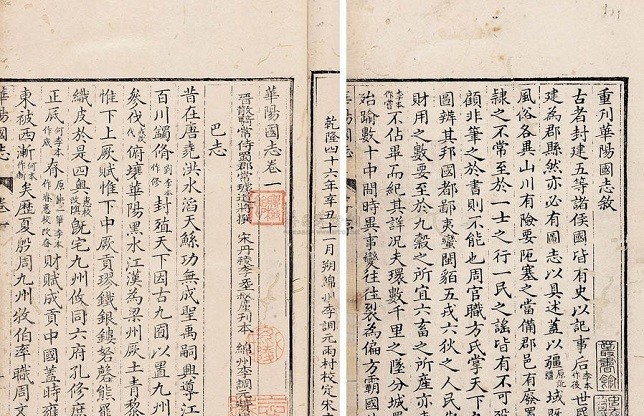 重刊華陽國志敘
古者封建五等諸侯國皆有史以記事后李本作後世民
建為郡縣然亦必有圖志以具述蓋以疆域既
風俗各異山川有險要阨塞之當備郡邑有廢置
隸之不常至於一士之行一民之謠皆有不可
顧非筆之於書則不能也周官職方氏掌天下
圖辨其邦國都鄙夷蠻閩貊五戎六狄之人民
財用之數要至於九穀之所宜六畜之所產亦
不佔畢而紀其詳况夫環數千里之墜分城
殆踰數十中間時異事變往往裂為偏方霸國
乾隆四十六年辛丑十一月朔綿州李調元雨村校定宋
華陽國志卷一
晉散騎常侍蜀郡常璩道將撰 宋丹稜李刊本 綿州李調元
巴志
昔在唐堯洪水滔天鯀功無成聖禹嗣興導江
百川蠲脩封殖天下因古九囿以置九州
參伐俯壤華陽黑水江漢為梁州厥土青黎
惟下上厥賦惟下中厥貢璆鐵銀鏤砮磬熊羆
織皮於是四奧既宅九州攸同六府孔修
正厎春財賦成貢中國蓋時雍
東被西漸何本作漸矣歷夏殷周九州牧伯率職周文
華陽國志 卷一